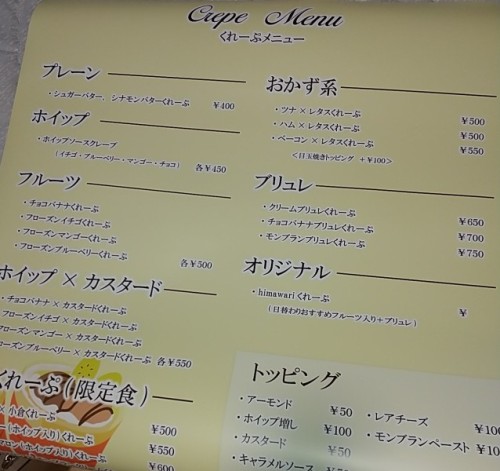 Crepe Menu
くれーぷメニュー
プレーン
・シュガーバター、シナモンバターくれーぷ ¥400
ホイップ
・ホイップソースクレープ
(イチゴ・ブルーベリー・マンゴー・チョコ) 各¥450
フルーツ
・チョコバナナくれーぷ
・フローズンイチゴくれーぷ
・フローズンマンゴーくれーぷ
・フローズンブルーベリーくれーぷ 各¥500
ホイップ×カスタード
・チョコバナナ×カスタードくれーぷ
フローズンイチゴ×カスタードくれーぷ
フローズンマンゴー×カスタードくれーぷ
フローズンブルーベリー×カスタードくれーぷ 各¥550
くれーぷ(限定食)
×小倉くれーぷ ¥500
(ホイップ入り)くれーぷ ¥550
(ホイップ入り)くれーぷ ¥600
おかず系
・ツナ×レタスくれーぷ ¥500
・ハム×レタスくれーぷ ¥500
・ベーコン×レタスくれーぷ ¥550
<目玉焼きトッピング +¥100>
ブリュレ
・クリームブリュレくれーぷ ¥650
・チョコバナナブリュレくれーぷ ¥700
・モンブランブリュレくれーぷ ¥750
オリジナル
・himawariくれーぷ ¥
(日替わりおすすめフルーツ入り+ブリュレ)
トッピング
・アーモンド ¥50
・ホイップ増し ¥100
・カスタード ¥50
・キャラメルソース
・レアチーズ ¥100
・モンブランペースト ¥10